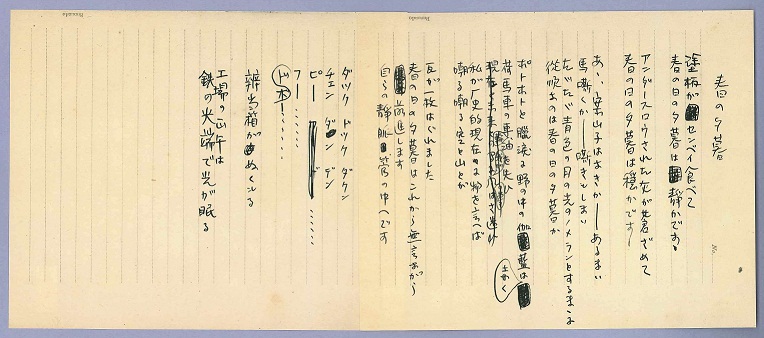 春の日の夕暮
塗板がセンベイ食べて
春の日の夕暮は静かです
アンダースロウされた灰が蒼ざめて
春の日の夕暮は穏かです
あゝ、案山子はなきか――あるまい
馬嘶くか――嘶きもしまい
たゞたゞ青色の月の光のノメランとするまゝに
従順なのは春の日の夕暮か
ポトホトと臘涙に野の中の伽藍は
荷馬車の車輪 油を失ひ
私が歴史的現在に物を言へば
嘲る嘲る空と山とが
瓦が一枚はぐれました
春の日の夕暮はこれから無言ながら
前進します
自らの静脈管の中へです
ダック ドック ダクン
チェン ダン デン
ピー
フー
ドホー
弁当箱がぬくもる
工場の正午は
鉄の火端で光が眠る